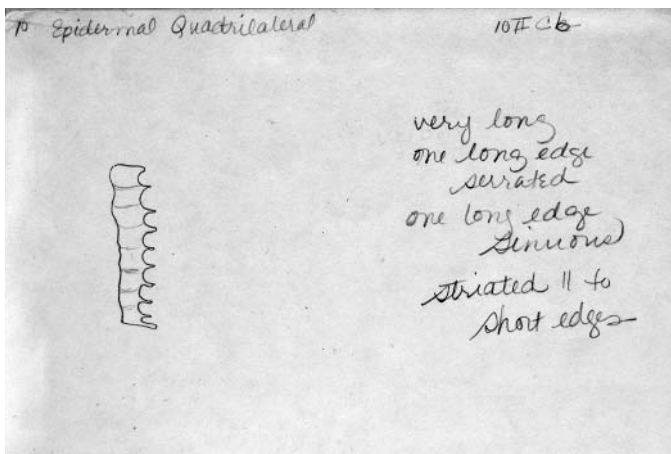 10 Epidermal Quadrilateral 10 II C b
very long
one long edge
serrated
one long edge
sinuous
striated || to
short edges